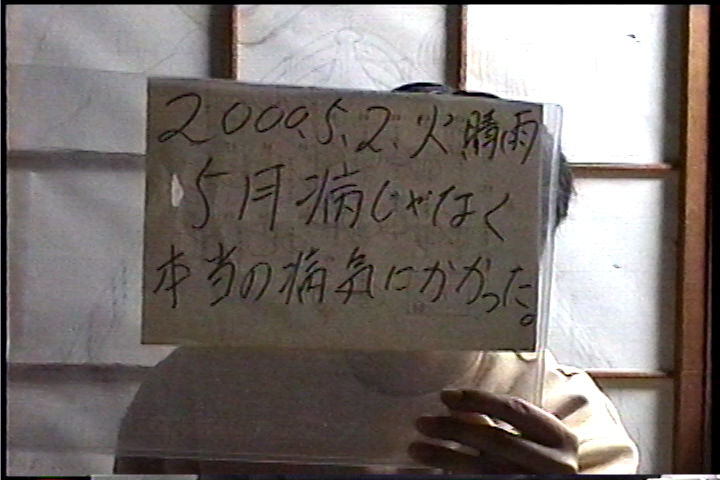 2000.5.2.火 晴雨
5月病じゃなく
本当の病気にかかった。